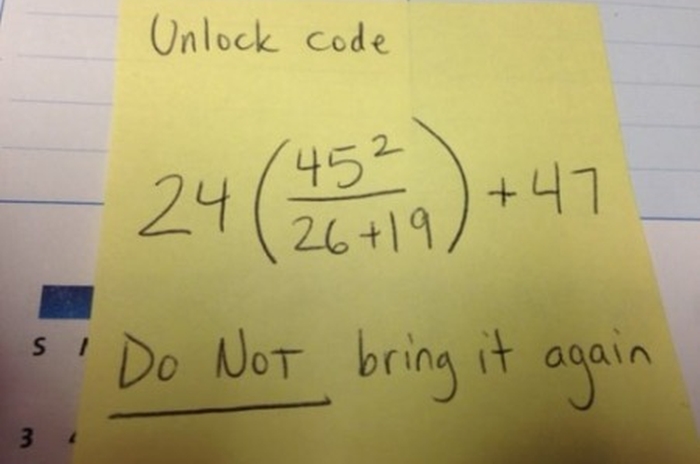 Unlock code
24 (45²/26+19) + 47
Do NOT bring it again
S
3